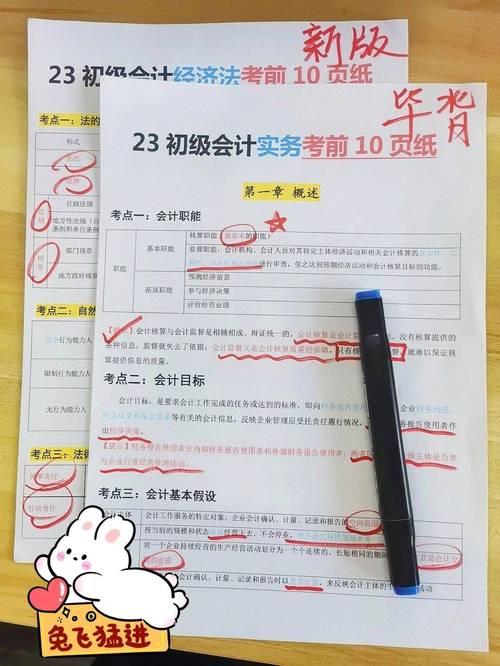 新版
23初级会计经济法考前10页纸
考点一：法的
形式
宪法
法律
法规
行政法规
地方性法规（自
条例和单行条例）
规章
部门规章
地方政府规章
考点二：自然
完全行为能力人
限制行为能力人
无行为能力人
考点三：法律
民事责任
行政责任
毕背
23初级会计实务考前10页纸
第一章 概述
考点一：会计职能
职能
基本职能
核算职能（最基本的职能）
监督职能：会计机构、会计人员对其特定主体经济活动和相关会计核算的真实性、完
整性、合法性和合理性进行审查，使之达到预期经济活动和会计核算目标的功能。
拓展职能
预测经济前景
参与经济决策
评价经营业绩
【提示】会计核算与会计监督是相辅相成、辩证统一的。会计核算是会计监督的基础，没有核算提供的
各种信息，监督就失去了依据；会计监督又是会计核算质量的保障，只有核算没有监督，就难以保证核
算提供信息的质量。
考点二：会计目标
会计目标，是要求会计工作完成的任务或达到的标准，即向财务报告使用者提供企业财务状况、
经营成果和现金流量等有关的会计信息，反映企业管理层受托责任履行情况，有助于财务报告使用者作
出经济决策。
【提示】财务报告使用者分内部财务报告使用者和外部财务报告使用者；两者的区别在于该主体是否参
与企业日常经营管理活动。
考点三：会计基本假设
会计主体
会计工作服务的特定对象，企业会计确认、计量、记录和报告的空间范围
按当前的规模和状态继续经营下去，不会停业，也不会大规模削减业务
将一个企业持续经营的生产经营活动划分为一个个连续的、长短相同的期间
会计确认、计量、记录和报告时以货币计量，来反映会计主体的生产经营活动
兔飞猛进